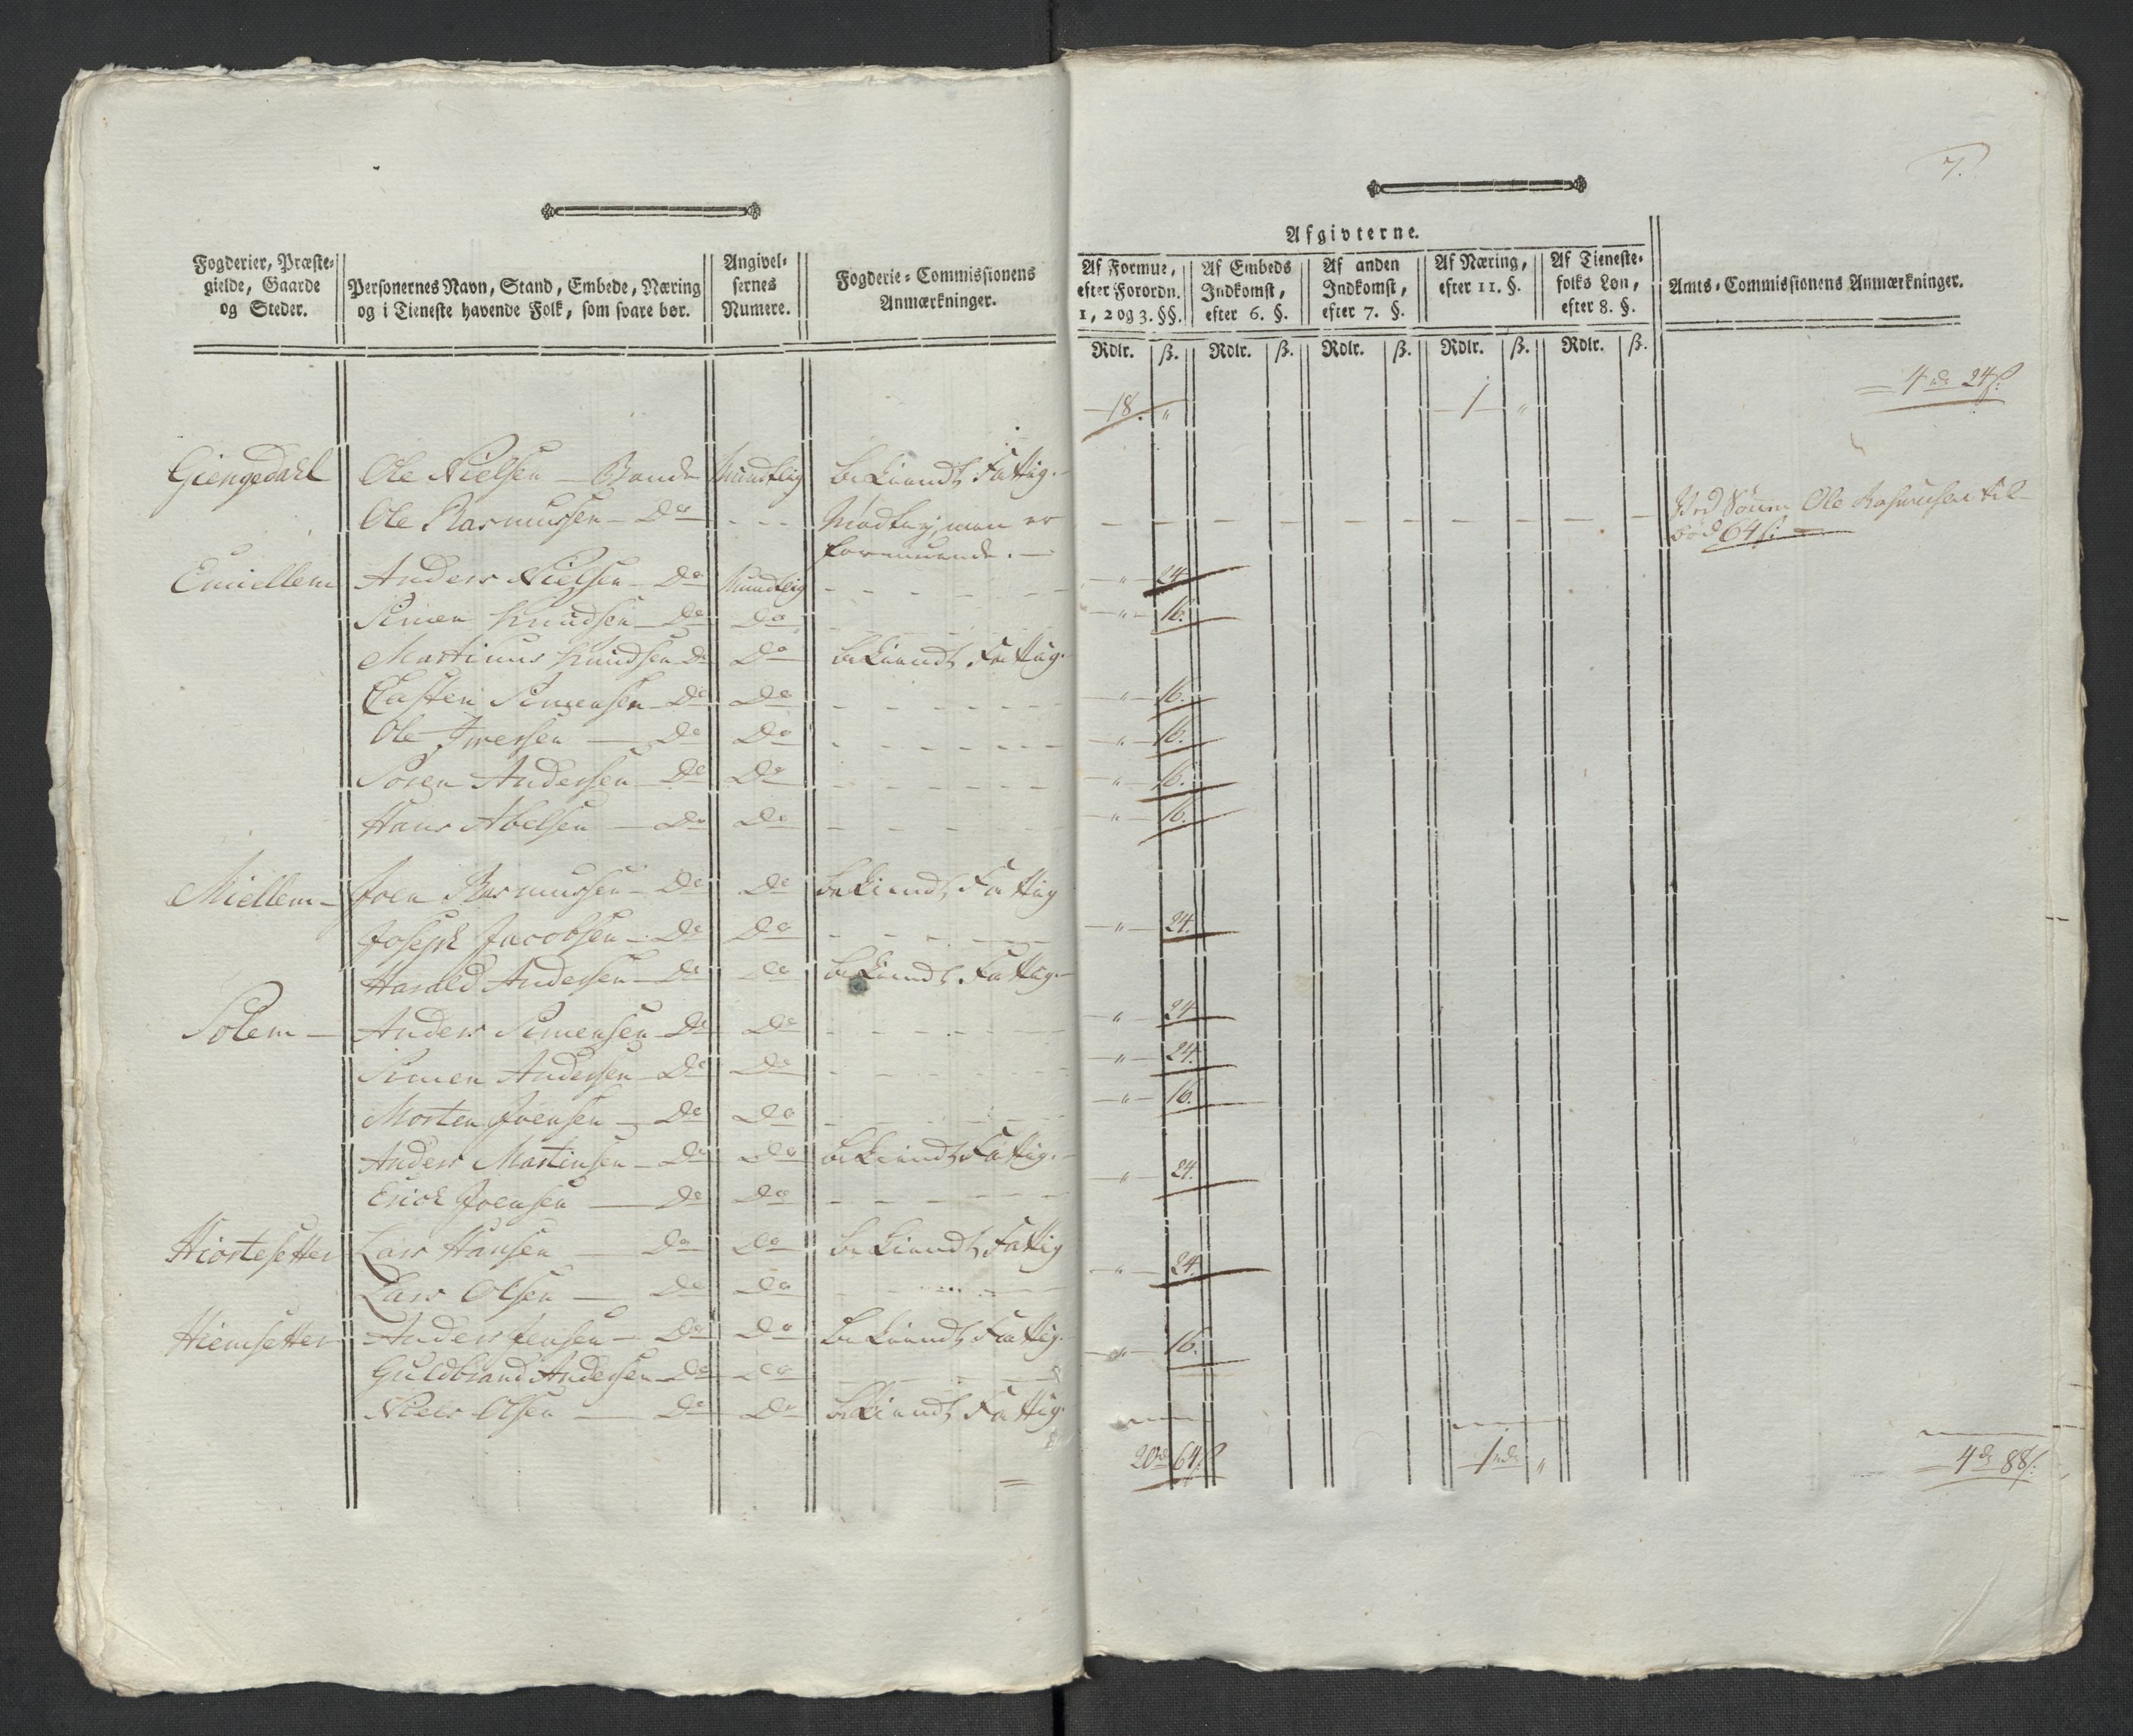 7.
Fogderier, Præste-
gielde, Gaarde
og Steder.
Personernes Navn, Stand, Embede, Næring
og i Tieneste havende Folk, som svare bør.
Angivel-
sernes
Numere.
Fogderie-Commissionens
Anmærkninger.
Afgivterne.
Af Formue,
efter Forordn.
1, 2 og 3. §§.
Af Embeds
Indkomst,
efter 6. §.
Af anden
Indkomst,
efter 7. §.
Af Næring,
efter 11. §.
Af Tieneste-
folks Løn,
efter 8. §.
Amts-Commissionens Anmærkninger.
Rdlr. ß. Rdlr. ß. Rdlr. ß. Rdlr. ß. Rdlr. ß.
18. " 1 " 4 rdr 24 ß:
Giengedahl Ole Nielsen Bonde Mundtlig bekiendt Fattig.
Ole Rasmussen Do - - - man er
formuende.
Ole Rasmusen til-
bød 64 ß:
Anders Nielsen Do Mundtlig " 24
Simen Knudsen Do Do " 16.
Martinus Knudsen Do Do bekiendt Fattig.
Casten Simensen Do Do " 16.
Ole Iwersen Do Do " 16.
Søren Andersen Do Do " 16.
Hans Abelsen Do Do " 16.
Miellem Joen Rasmussen Do Do bekiendt Fattig
Joseph Jacobsen Do Do " 24.
Harald Andersen Do Do bekiendt Fattig.
Solem Anders Simensen Do Do " 24
Simen Andersen Do Do " 24.
Morten Joensen Do Do " 16.
Anders Martinsen Do Do bekiendt Fattig.
Erich Joensen Do Do " 24.
Hiortesetter Lars Hansen Do Do bekiendt Fattig
Lars Olsen Do Do " 24.
Hiemsetter Anders Jensen Do Do bekiendt Fattig.
Guldbrand Andersen Do Do " 16.
Niels Olsen Do Do bekiendt Fattig.
20 rd 64 ß 1 rdr " 4 dr 88 ß: